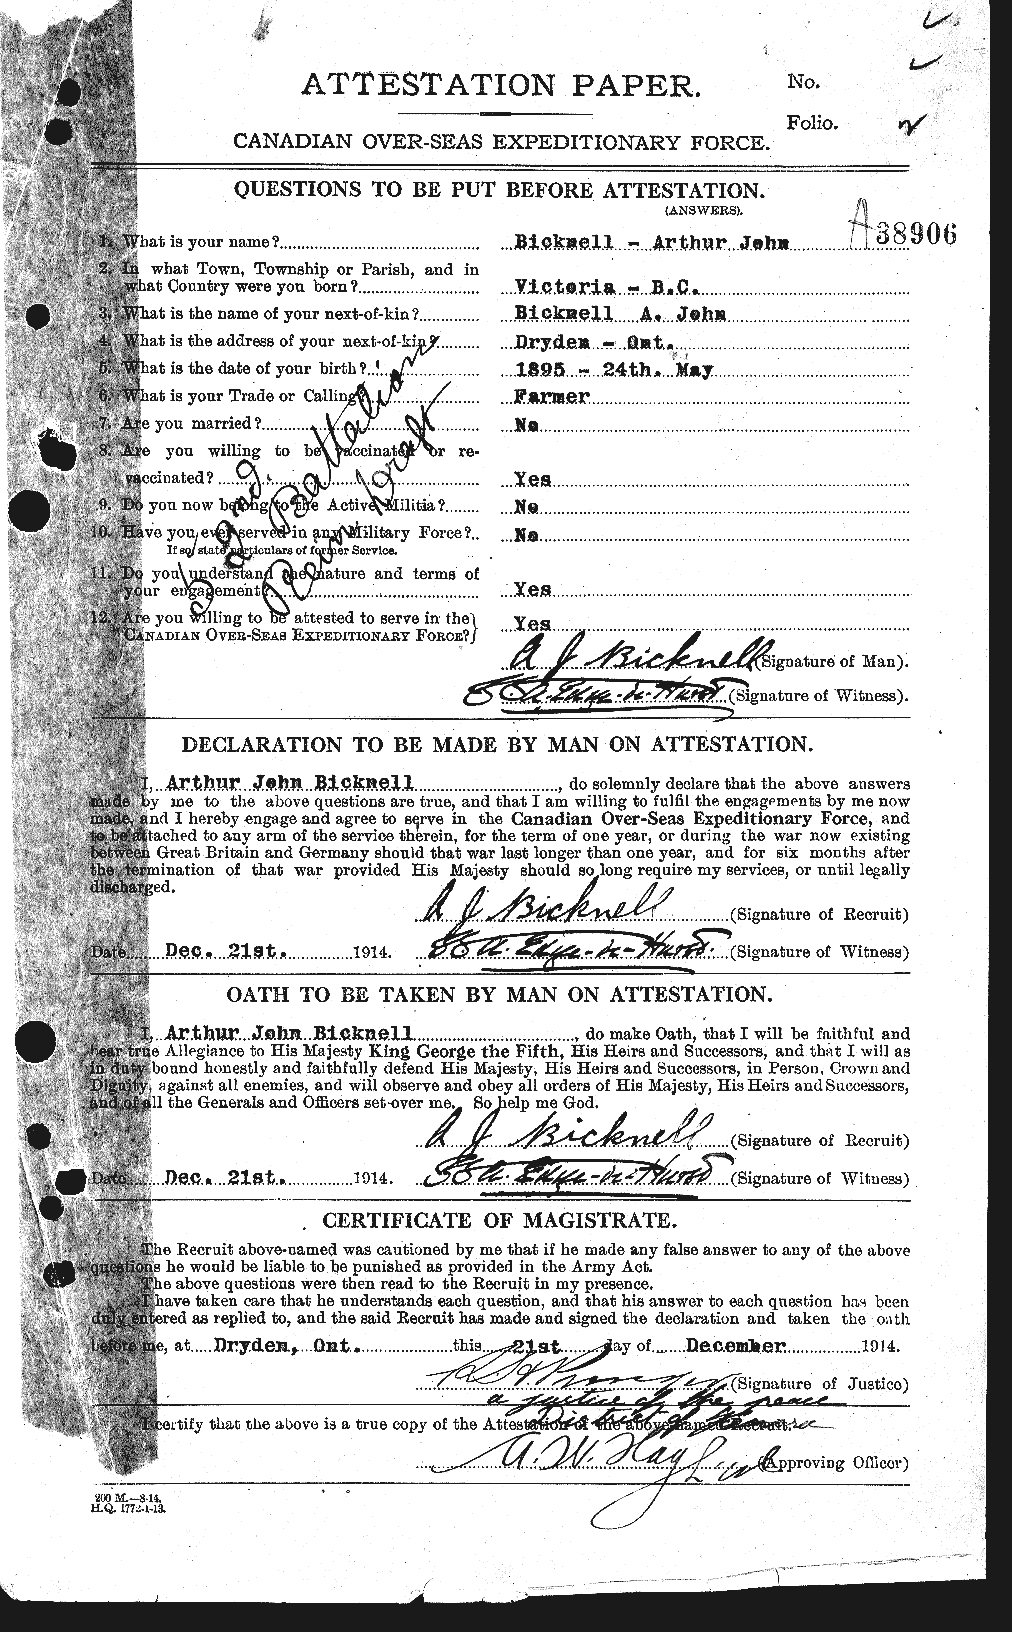 ATTESTATION PAPER.
No.
Folio.
CANADIAN OVER-SEAS EXPEDITIONARY FORCE.
QUESTIONS TO BE PUT BEFORE ATTESTATION.
(ANSWERS).
A38906
1. What is your name? Bicknell - Arthur John
2. In what Town, Township or Parish, and in
what Country were you born? Victoria - B.C.
3. What is the name of your next-of-kin? Bicknell A. John
4. What is the address of your next-of-kin? Dryden - Ont.
5. What is the date of your birth? 1895 - 24th. May
6. What is your Trade or Calling? Farmer
7. Are you married? No
8. Are you willing to be vaccinated or re-
vaccinated? Yes
9. Do you now belong to the Active Militia? No
10. Have you ever served in any Military Force? No
If so, state particulars of former Service.
11. Do you understand the nature and terms of
your engagement? Yes
12. Are you willing to be attested to serve in the
CANADIAN OVER-SEAS EXPEDITIONARY FORCE? Yes
52nd. Battalion
Rein Draft
A J Bicknell (Signature of Man).
(Signature of Witness).
DECLARATION TO BE MADE BY MAN ON ATTESTATION.
I, Arthur John Bicknell, do solemnly declare that the above answers
made by me to the above questions are true, and that I am willing to fulfil the engagements by me now
made, and I hereby engage and agree to serve in the Canadian Over-Seas Expeditionary Force, and
to be attached to any arm of the service therein, for the term of one year, or during the war now existing
between Great Britain and Germany should that war last longer than one year, and for six months after
the termination of that war provided His Majesty should so long require my services, or until legally
discharged.
A J Bicknell (Signature of Recruit)
Date Dec. 21st. 1914. (Signature of Witness)
OATH TO BE TAKEN BY MAN ON ATTESTATION.
I, Arthur John Bicknell, do make Oath, that I will be faithful and
bear true Allegiance to His Majesty King George the Fifth, His Heirs and Successors, and that I will as
in duty bound honestly and faithfully defend His Majesty, His Heirs and Successors, in Person, Crown and
Dignity, against all enemies, and will observe and obey all orders of His Majesty, His Heirs and Successors,
and of all the Generals and Officers set over me. So help me God.
A J Bicknell (Signature of Recruit)
Date Dec. 21st. 1914. (Signature of Witness)
CERTIFICATE OF MAGISTRATE.
The Recruit above-named was cautioned by me that if he made any false answer to any of the above
questions he would be liable to be punished as provided in the Army Act.
The above questions were then read to the Recruit in my presence.
I have taken care that he understands each question, and that his answer to each question has been
duly entered as replied to, and the said Recruit has made and signed the declaration and taken the oath
before me, at Dryden, Ont. this 21st day of December 1914.
(Signature of Justice)
a justice of the peace
I certify that the above is a true copy of the Attestation of the above-named Recruit.
A. W. Hay (Approving Officer)
200 M.—8-14.
H.Q. 1772-1-13.